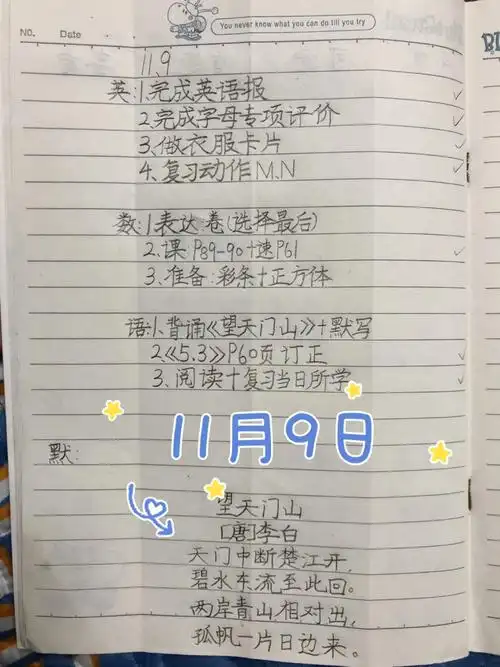 NO.
Date
You never know what you can do till you try
11.9
英:1.完成英语报
2.完成字母专项评价
3.做衣服卡片
4.复习动作M.N
数:1表达卷(选择最后)
2.课:P89-90+速P61
3.准备:彩条+正方体
语:1.背诵《望天门山》+默写
2《5.3》P60页订正
3.阅读+复习当日所学
11月9日
默:
望天门山
[唐]李白
天门中断楚江开,
碧水东流至此回。
两岸青山相对出,
孤帆一片日边来。